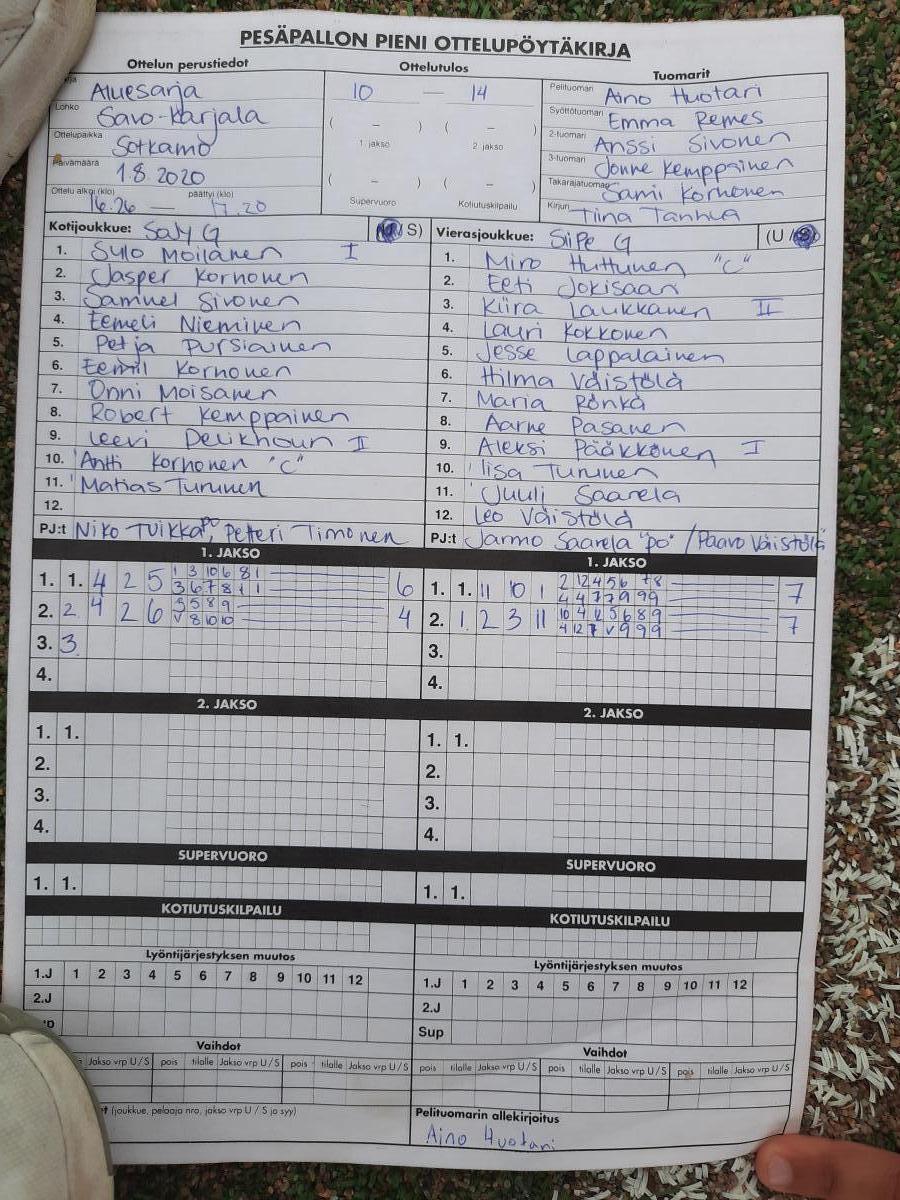 PESÄPALLON PIENI OTTELUPÖYTÄKIRJA
Ottelun perustiedot
Aluesarja
Lohko
Savo-Karjala
Ottelupaikka
Sotkamo
Päivämäärä
1.8.2020
Ottelu alkoi (klo) päättyi (klo)
16.26 — 17.20
Ottelutulos
10 — 14
( – ) ( – )
1. jakso 2. jakso
( – ) ( – )
Supervuoro Kotiutuskilpailu
Tuomarit
Pelituomari Aino Huotari
Syöttötuomari Emma Remes
2-tuomari Anssi Sivonen
3-tuomari Jonne Kemppainen
Takarajatuomari Sami Korhonen
Kirjuri Tiina Tanhua
Kotijoukkue: SoJy G (U/S)
1. Sulo Moilanen I
2. Jasper Korhonen
3. Samuel Sivonen
4. Eemeli Nieminen
5. Petja Pursiainen
6. Eemil Korhonen
7. Onni Moisanen
8. Robert Kemppainen
9. Leevi Delikhoun II
10. Antti Korhonen "C"
11. Matias Turunen
12.
PJ:t Niko Tuikka PO, Petteri Timonen
Vierasjoukkue: SiiPe G (U/S)
1. Miro Huttunen "C"
2. Eeti Jokisaari
3. Kiira Laukkanen II
4. Lauri Kokkonen
5. Jesse Lappalainen
6. Hilma Väistölä
7. Maria Rönkä
8. Aarne Pasanen
9. Aleksi Pääkkönen I
10. Iisa Turunen
11. Juuli Saarela
12. Leo Väistölä
PJ:t Jarmo Saarela "po" / Paavo Väistölä
1. JAKSO
1. 1. 4 2 5 1 3 10 6 8 1 6
3 6 7 8 11
2. 2. 4 2 6 5 5 8 9 4
V 8 10 10
3. 3.
4.
1. JAKSO
1. 1. 11 10 1 2 12 4 5 6 7 8 7
4 4 7 7 9 9 9
2. 1. 2 3 11 10 4 12 5 6 8 9 7
4 12 7 V 9 9 9
3.
4.
2. JAKSO
1. 1.
2.
3.
4.
2. JAKSO
1. 1.
2.
3.
4.
SUPERVUORO
1. 1.
SUPERVUORO
1. 1.
KOTIUTUSKILPAILU
KOTIUTUSKILPAILU
Lyöntijärjestyksen muutos
1.J 1 2 3 4 5 6 7 8 9 10 11 12
2.J
Lyöntijärjestyksen muutos
1.J 1 2 3 4 5 6 7 8 9 10 11 12
2.J
Sup
Vaihdot
Jakso vrp U/S pois tilalle Jakso vrp U/S pois tilalle Jakso vrp U/S
Vaihdot
pois tilalle Jakso vrp U/S pois tilalle Jakso vrp U/S pois tilalle Jakso vrp U/S
(joukkue, pelaaja nro, jakso vrp U / S ja syy)
Pelituomarin allekirjoitus
Aino Huotari